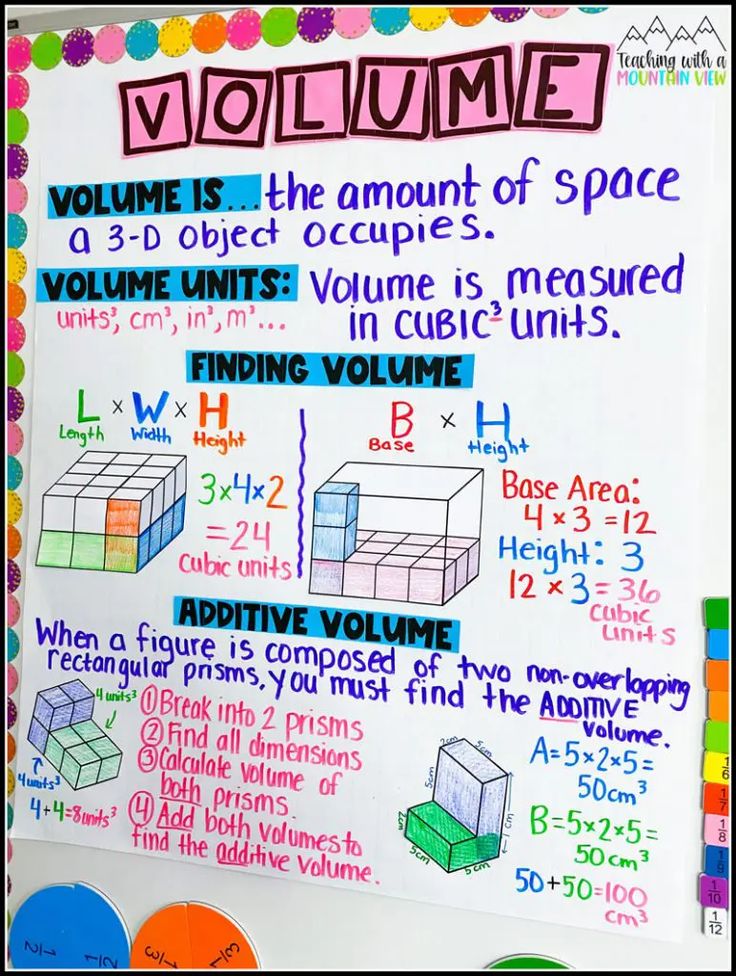 Teaching with a
MOUNTAIN VIEW
VOLUME
VOLUME IS... the amount of space
a 3-D object occupies.
VOLUME UNITS: Volume is measured
units³, cm³, in³, m³... in CUBIC³ units.
FINDING VOLUME
L × W × H
Length Width Height
3×4×2
=24
cubic units
B × H
Base Height
Base Area:
4 × 3 =12
Height: 3
12 × 3 = 36
cubic
units
ADDITIVE VOLUME
When a figure is composed of two non-overlapping
rectangular prisms, you must find the ADDITIVE
volume.
4 units³
4 units³
4+4=8units³
① Break into 2 prisms
② Find all dimensions
③ Calculate volume of
both prisms.
④ Add both volumes to
find the additive volume.
2cm 5cm
5cm
2cm
5cm
5cm
A=5×2×5=
50cm³
B=5×2×5=
50cm³
50+50=100
cm³
1/6
1/7
1/8
1/9
1/10
1/12
1/2 1/2
1/3 1/3